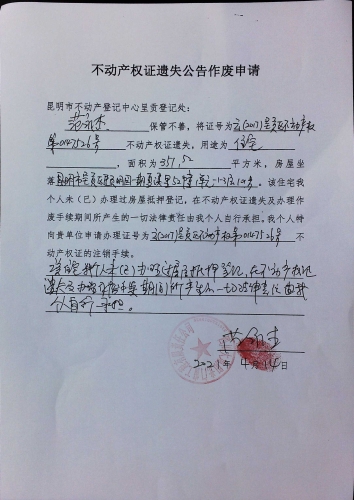 不动产权证遗失公告作废申请
昆明市不动产登记中心呈贡登记处：
保管不善，将证号为云(2017)呈贡区不动产权
第0147526号 不动产权遗失，用途为住宅
，面积为357.52 平方米，房屋坐
落昆明市呈贡区 52幢 1-3层 号。该住宅我
个人未（已）办理过房屋抵押登记，在不动产权遗失及办理作
废手续期间所产生的一切法律责任由我个人自行承担。我个人特
向贵单位申请办理证号为云(2017)呈贡区不动产权第0147526号 不
动产权的注销手续。
该 我个人未(已)办理过房屋抵押登记，在不动产权证
遗失及办理作废手续期间所产生的一切法律责任由我
个人自行承担。
2021年4月14日